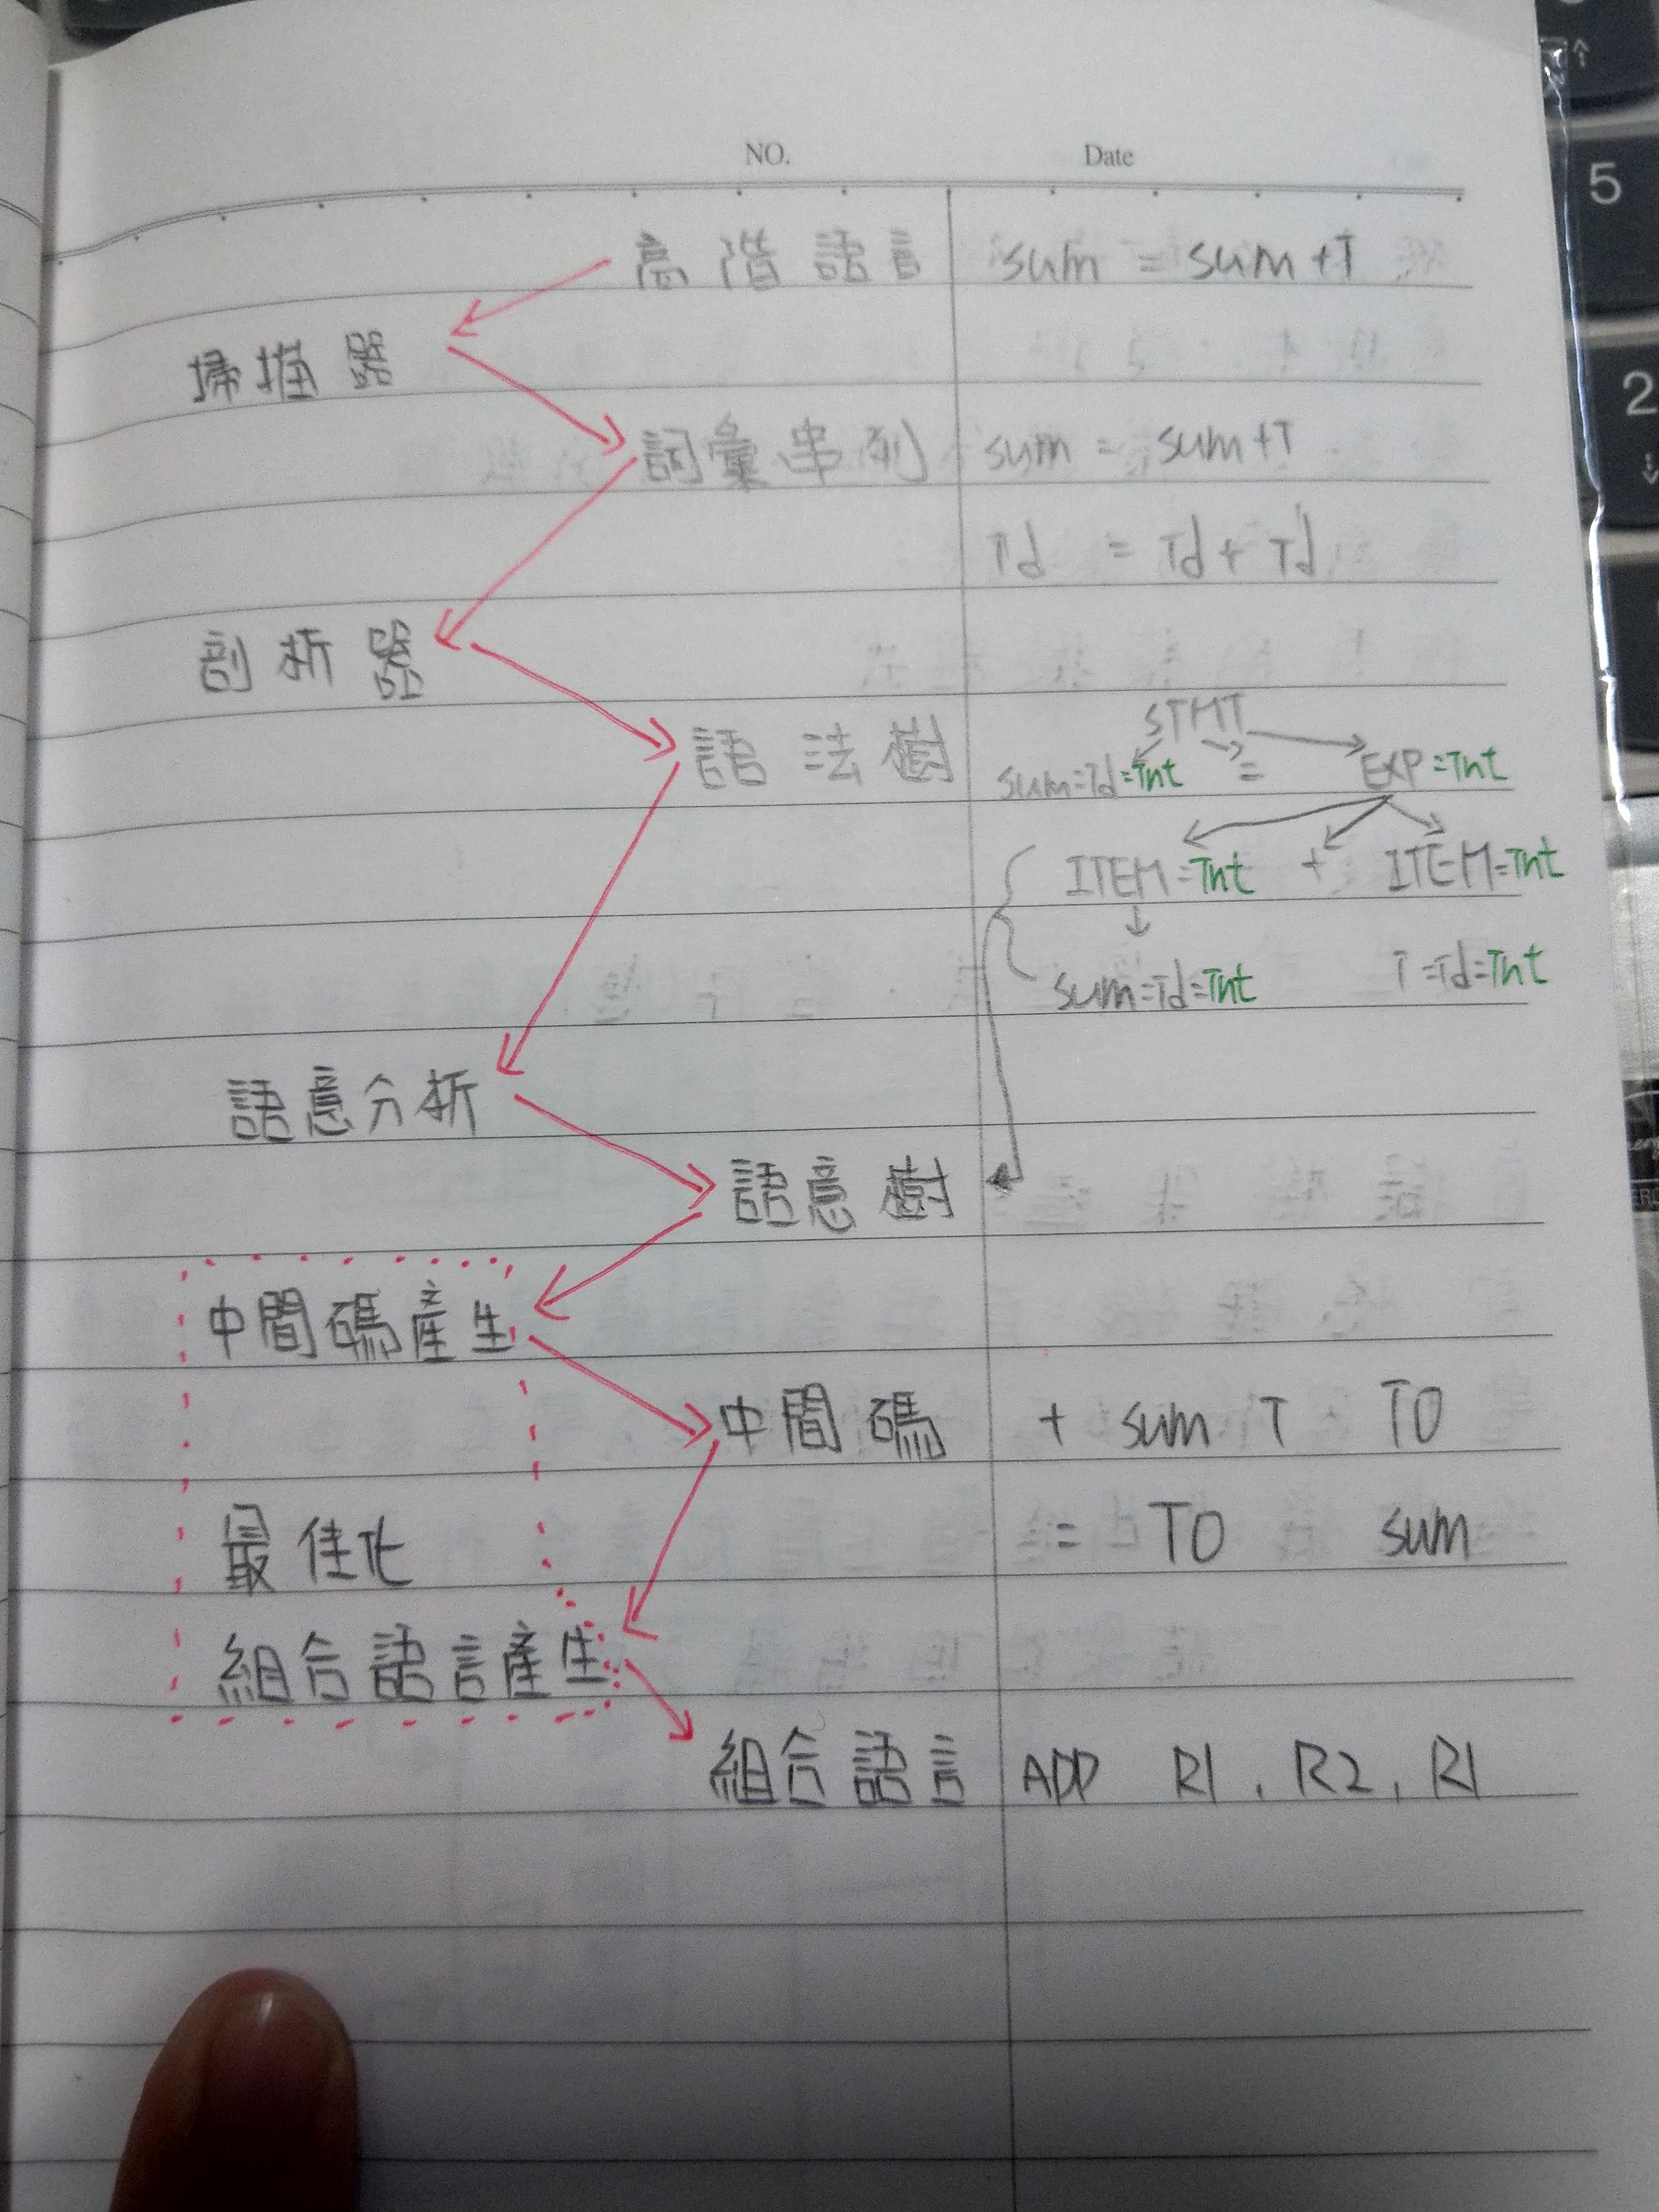 NO. Date
高階語言 sum = sum+T
掃描器
詞彙串列 sum = sum+T
Td = Td + Td
剖析器
STMT
語法樹 sum=Td=Tnt = EXP=Tnt
ITEM=Tnt + ITEM=Tnt
sum=Td=Tnt T=Td=Tnt
語意分析
語意樹
中間碼產生
中間碼 + sum T TO
最佳化 = TO sum
組合語言產生
組合語言 ADD R1, R2, R1
5
2